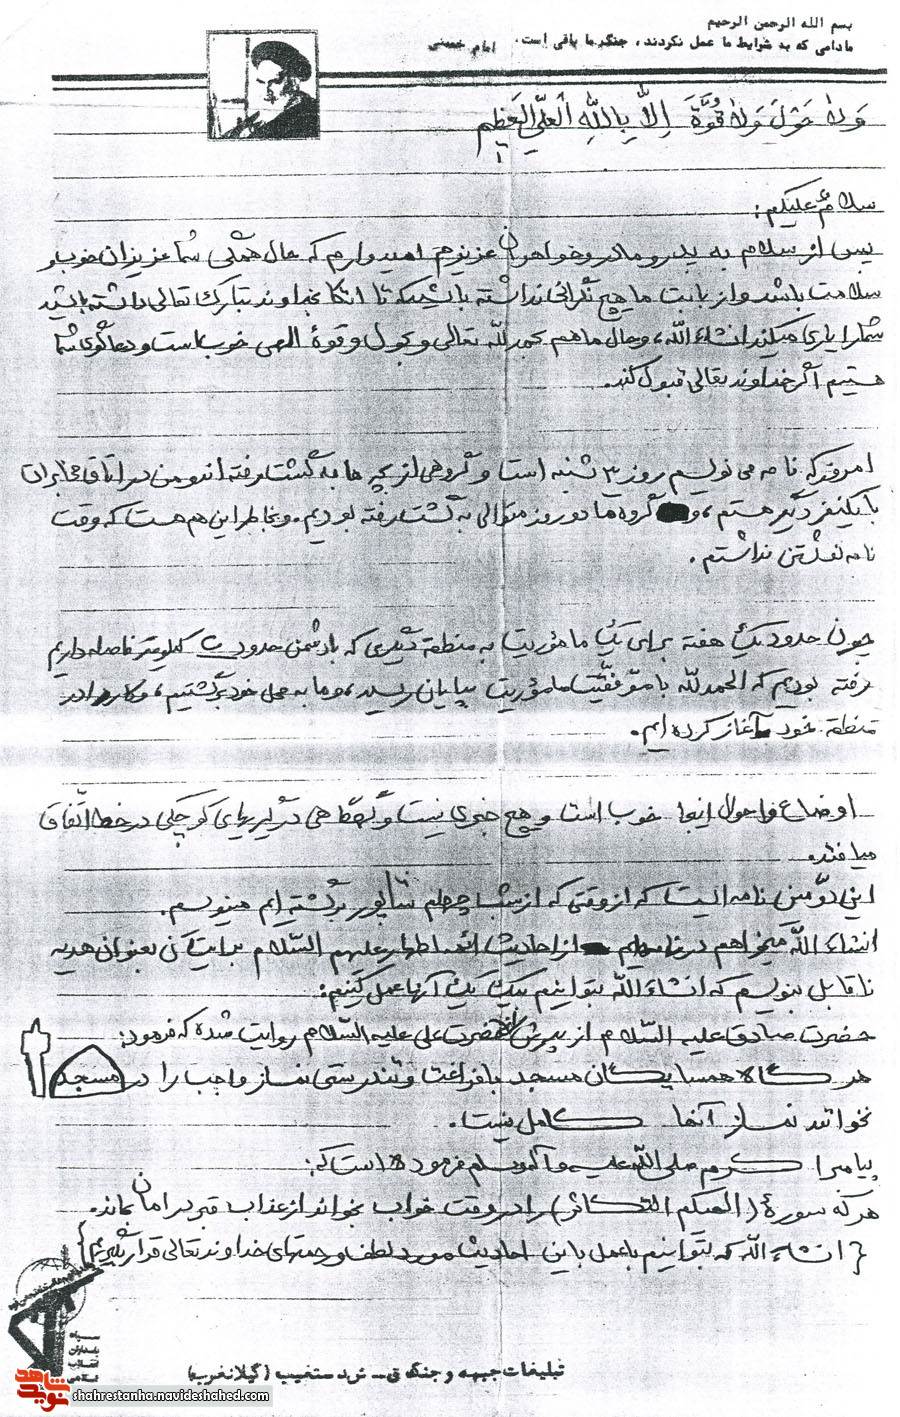 بسم الله الرحمن الرحیم
مادامی که به شرایط ما عمل نکردند، جنگ ما باقی است. امام خمینی
وَلا حَوْلَ وَلا قُوَّةَ اِلاّ بِاللّٰهِ الْعَلِیِّ الْعَظیم
سلامٌ علیکم:
پس از سلام به پدر و مادر و خواهران عزیزم امیدوارم که حال همگی شما عزیزان خوب و
سلامت باشد و از بابت ما هیچ نگرانی نداشته باشید که تا اتکا بخداوند تبارک تعالی داشته باشید
شما را یاری میکند انشاءالله، و حال ما هم بحمدلله تعالی و بحول و قوهٔ الهی خوب است و دعاگوی شما
هستیم اگر خداوند تعالی قبول کند.
امروز که نامه می نویسم روز ۳ شنبه است و گروهی از بچه ها به گشت رفته اند و من در اتاق مخابرات
با یکنفر دیگر هستم، و گروه ما دو روز متوالی به گشت رفته بودیم. و بخاطر این هم هست که وقت
نامه نوشتن نداشتم.
چون حدود یک هفته برای یک مأموریت به منطقه دیگری که با دشمن حدود کیلومتر فاصله داریم
رفته بودیم که الحمدلله با موفقیت مأموریت بپایان رسید، و ما به محل خود برگشتیم، و کار را در
منطقه خود آغاز کرده ایم.
اوضاع و احوال اینجا خوب است و هیچ خبری نیست و گهگاهی درگیریهای کوچکی در خط اتّفاق
میافتد.
این دوّمین نامه ایست که از وقتی که از شب چهلم شاپور برگشته ایم مینویسم.
انشاءالله میخواهم در نامه هایم از احادیث ائمه اطهار علیهم السّلام برایتان بعنوان هدیه
ناقابل بنویسم که انشاءالله بتوانیم یک یک آنها عمل کنیم:
حضرت صادق علیه السّلام از پدرش از حضرت علی علیه السّلام روایت شده که فرمود:
هر گاه همسایگان مسجد با فراغت و تندرستی نماز واجب را در مسجد
نخوانند نماز آنها کامل نیست.
پیامبر اکرم صلی الله علیه و آله و سلم فرموده است که:
هر که سورهٔ (الهیکم التکاثر) را در وقت خواب بخواند از عذاب قبر در امان بماند.
{انشاءالله که بتوانیم با عمل باین احادیث مورد لطف و رحمتهای خداوند تعالی قرار بگیریم}
سپاه
پاسداران
انقلاب
اسلامی
تبلیغات جبهه و جنگ (گیلانغرب)
نوید شاهد
shahrestanha.navideshahed.com